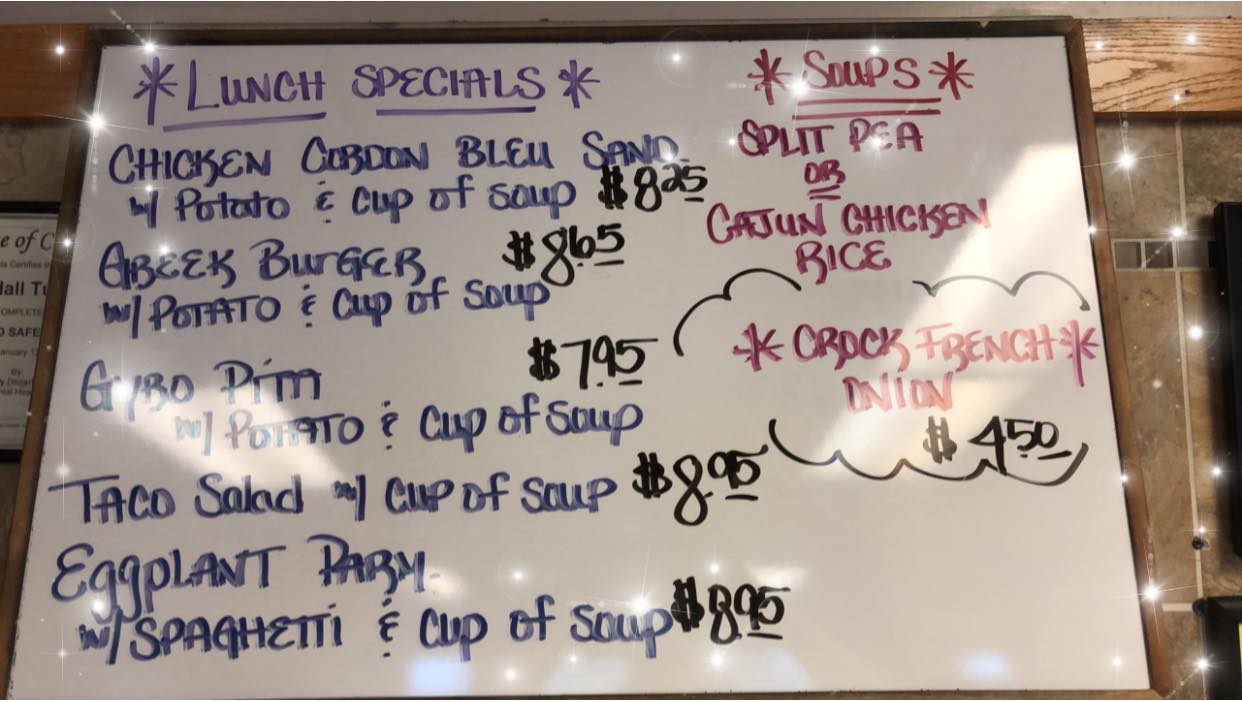 * LUNCH SPECIALS *
CHICKEN CORDON BLEU SAND.
w/ Potato & Cup of Soup $8.25
GREEK BURGER $8.65
w/ POTATO & Cup of Soup
GYRO PITA $7.95
w/ POTATO & Cup of Soup
TACO Salad w/ Cup of Soup $8.95
EggPLANT PARM.
w/ SPAGHETTI & Cup of Soup $8.95
* SOUPS *
SPLIT PEA
OR
CAJUN CHICKEN
RICE
* CROCK FRENCH *
ONION
$4.50